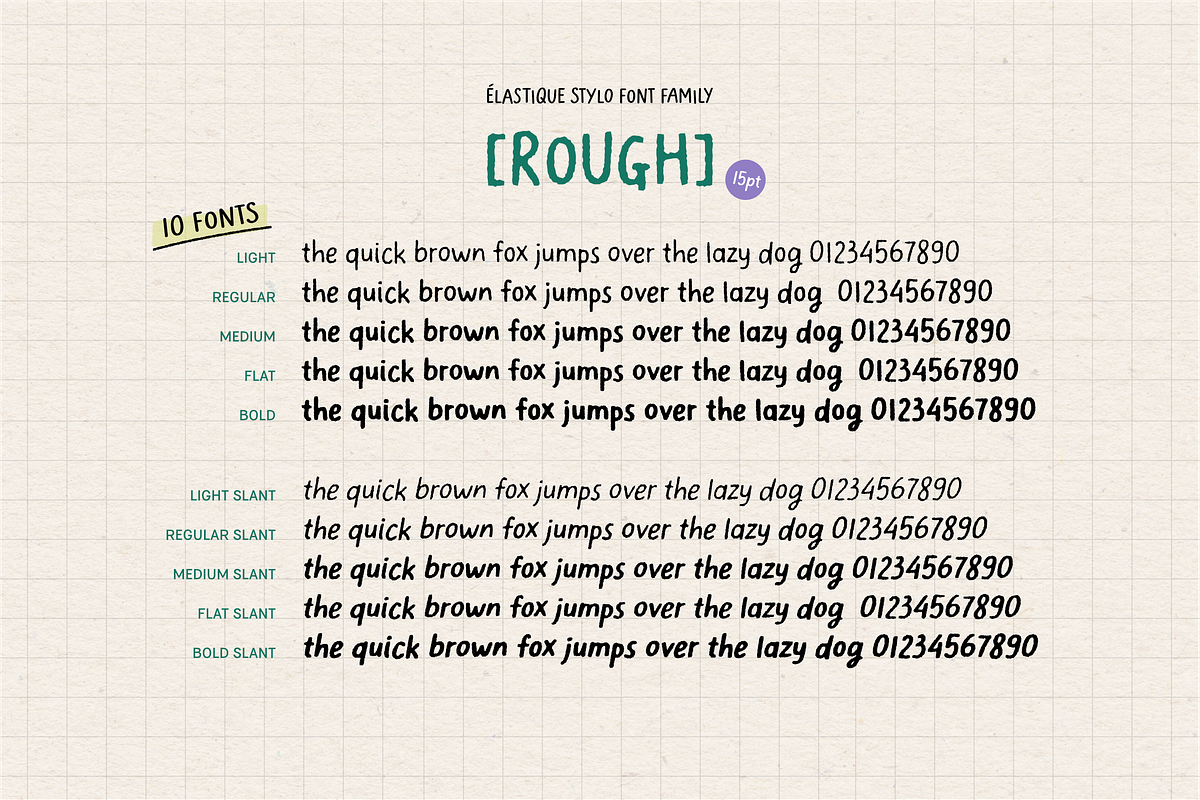 ÉLASTIQUE STYLO FONT FAMILY
[ROUGH]
15pt
10 FONTS
LIGHT the quick brown fox jumps over the lazy dog 01234567890
REGULAR the quick brown fox jumps over the lazy dog 01234567890
MEDIUM the quick brown fox jumps over the lazy dog 01234567890
FLAT the quick brown fox jumps over the lazy dog 01234567890
BOLD the quick brown fox jumps over the lazy dog 01234567890
LIGHT SLANT the quick brown fox jumps over the lazy dog 01234567890
REGULAR SLANT the quick brown fox jumps over the lazy dog 01234567890
MEDIUM SLANT the quick brown fox jumps over the lazy dog 01234567890
FLAT SLANT the quick brown fox jumps over the lazy dog 01234567890
BOLD SLANT the quick brown fox jumps over the lazy dog 01234567890